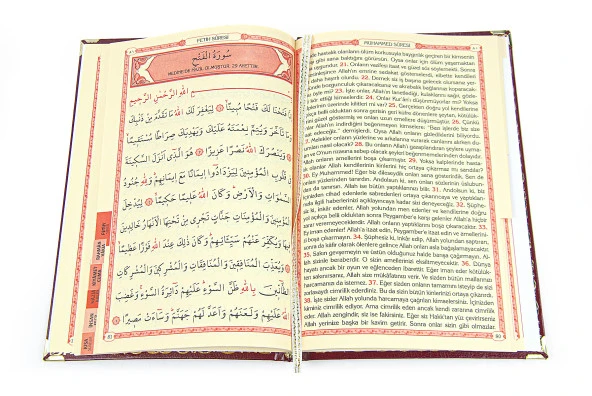 MUHAMMED SÛRESİ
de hastalık olanların ölüm korkusuyla baygınlık geçiren bir kimsenin
gibi sana baktığını görürsün. Oysa onlar için ölüm yaşamaktan
21. Onların vazifesi itaat ve güzel söz söylemekti. Sonra
kesinleşince Allah'ın emrine sadakat gösterselerdi, elbette kendileri
daha hayırlı olurdu. 22. Demek siz iş başına gelecek olursanız yer-
yüzünde bozgunculuk çıkaracaksınız ve akrabalık bağlarınızı koparacak-
öyle mi? 23. İşte onlar, Allah'ın lanetlediği, kulaklarını sağır, gözle-
kör ettiği kimselerdir. 24. Onlar Kur'an'ı düşünmüyorlar mı? Yoksa
kalplerinin üzerinde kilitleri mi var? 25.
26. Çünkü
Allah'ın indirdiğini beğenmeyen kimselere: "Bazı işlerde biz size
itaat edeceğiz." demişlerdi. Oysa Allah onların gizlediklerini biliyordu.
27. Melekler onların yüzlerine ve arkalarına vurarak canlarını alırken du-
rumları nasıl olacak? 28. Bu onların Allah'ı gazaplandıran şeylere uymala-
rı ve O'nun rızasına sebep olacak şeyleri beğenmemelerinden dolayıdır.
Allah onların amellerini boşa çıkarmıştır. 29. Yoksa kalplerinde hastalık
olanlar, Allah kendilerinin kinlerini hiç ortaya çıkarmaz mı sandılar?
30. Ey Muhammed! Eğer biz dileseydik onları sana gösterirdik. Sen de
onları yüzlerinden tanırdın. Andolsun ki, sen onları sözlerinin üslubun-
dan da tanırsın. Allah ise bütün yaptıklarınızı bilir. 31. Andolsun ki, biz
içinizden cihad edenlerle sabredenleri ortaya çıkarıncaya ve yaptıklarınız-
la ilgili haberlerinizi açıklayıncaya kadar sizi deneyeceğiz. 32. Şüphe-
siz ki, inkâr edenler, Allah yolundan men edenler ve kendilerine doğru
yol açıkça belli olduktan sonra Peygambere karşı gelenler Allah'a hiçbir
zarar veremeyeceklerdir. Allah onların yaptıklarını boşa çıkaracaktır. 33.
Ey iman edenler! Allah'a itaat edin, Peygambere itaat edin ve amelleri-
nizi boşa çıkarmayın. 34. Şüphesiz ki, inkâr edip, Allah yolundan saptıran,
sonra da kâfir olarak ölenlere gelince Allah onları asla bağışlamayacaktır.
35. Sakın gevşemeyin ve üstün olduğunuz halde barışa çağırmayın. Al-
lah sizinle beraberdir. O sizin amellerinizi eksiltmeyecektir. 36. Dünya
hayatı ancak bir oyun ve eğlenceden ibarettir. Eğer iman eder kötülük-
ten sakınırsanız, Allah size mükâfatınızı verir. Ve sizden bütün mallarınızı
istemez. 37. Eğer sizden onların tamamını isteyip de sizi
zorlasaydı cimrilik ederdiniz. Bu da sizin bütün kinlerinizi ortaya çıkarırdı.
38. İşte sizler Allah yolunda harcamaya çağrılan kimselersiniz. İçinizden
kiminiz cimrilik ediyor. Ama cimrilik eden ancak kendi zararına cimrilik
eder. Allah zengindir, siz ise fakirsiniz. Eğer siz Hakk'tan yüz çevirirseniz
Allah yerinize başka bir kavim getirir. Sonra onlar sizin gibi olmazlar.
FETİH SÛRESİ
سُورَةُ الْفَتْحِ
MEDİNE'DE NAZİL OLMUŞTUR. 29 AYETTİR.
اللهِ الرَّحْمٰنِ الرَّحِيمِ
لَكَ فَتْحًا مُبِينًا لِيَغْفِرَ لَكَ اللهُ مَا تَقَدَّمَ مِنْ ذَنْبِكَ
وَمَا تَأَخَّرَ وَيُتِمَّ نِعْمَتَهُ عَلَيْكَ وَيَهْدِيَكَ صِرَاطًا مُسْتَقِيمًا
وَيَنْصُرَكَ اللهُ نَصْرًا عَزِيزًا هُوَ الَّذِي أَنْزَلَ السَّكِينَةَ
فِي قُلُوبِ الْمُؤْمِنِينَ لِيَزْدَادُوا إِيمَانًا مَعَ إِيمَانِهِمْ وَلِلّٰهِ جُنُودُ
السَّمٰوَاتِ وَالْأَرْضِ وَكَانَ اللهُ عَلِيمًا حَكِيمًا لِيُدْخِلَ
الْمُؤْمِنِينَ وَالْمُؤْمِنَاتِ جَنَّاتٍ تَجْرِي مِنْ تَحْتِهَا الْأَنْهَارُ خَالِدِينَ
فِيهَا وَيُكَفِّرَ عَنْهُمْ سَيِّئَاتِهِمْ وَكَانَ ذٰلِكَ عِنْدَ اللهِ فَوْزًا عَظِيمًا
وَيُعَذِّبَ الْمُنَافِقِينَ وَالْمُنَافِقَاتِ وَالْمُشْرِكِينَ وَالْمُشْرِكَاتِ
الظَّانِّينَ بِاللهِ ظَنَّ السَّوْءِ عَلَيْهِمْ دَائِرَةُ السَّوْءِ وَغَضِبَ
اللهُ عَلَيْهِمْ وَلَعَنَهُمْ وَأَعَدَّ لَهُمْ جَهَنَّمَ وَسَاءَتْ مَصِيرًا
81
FETİH
RAHMAN
CUMA
İNSAN